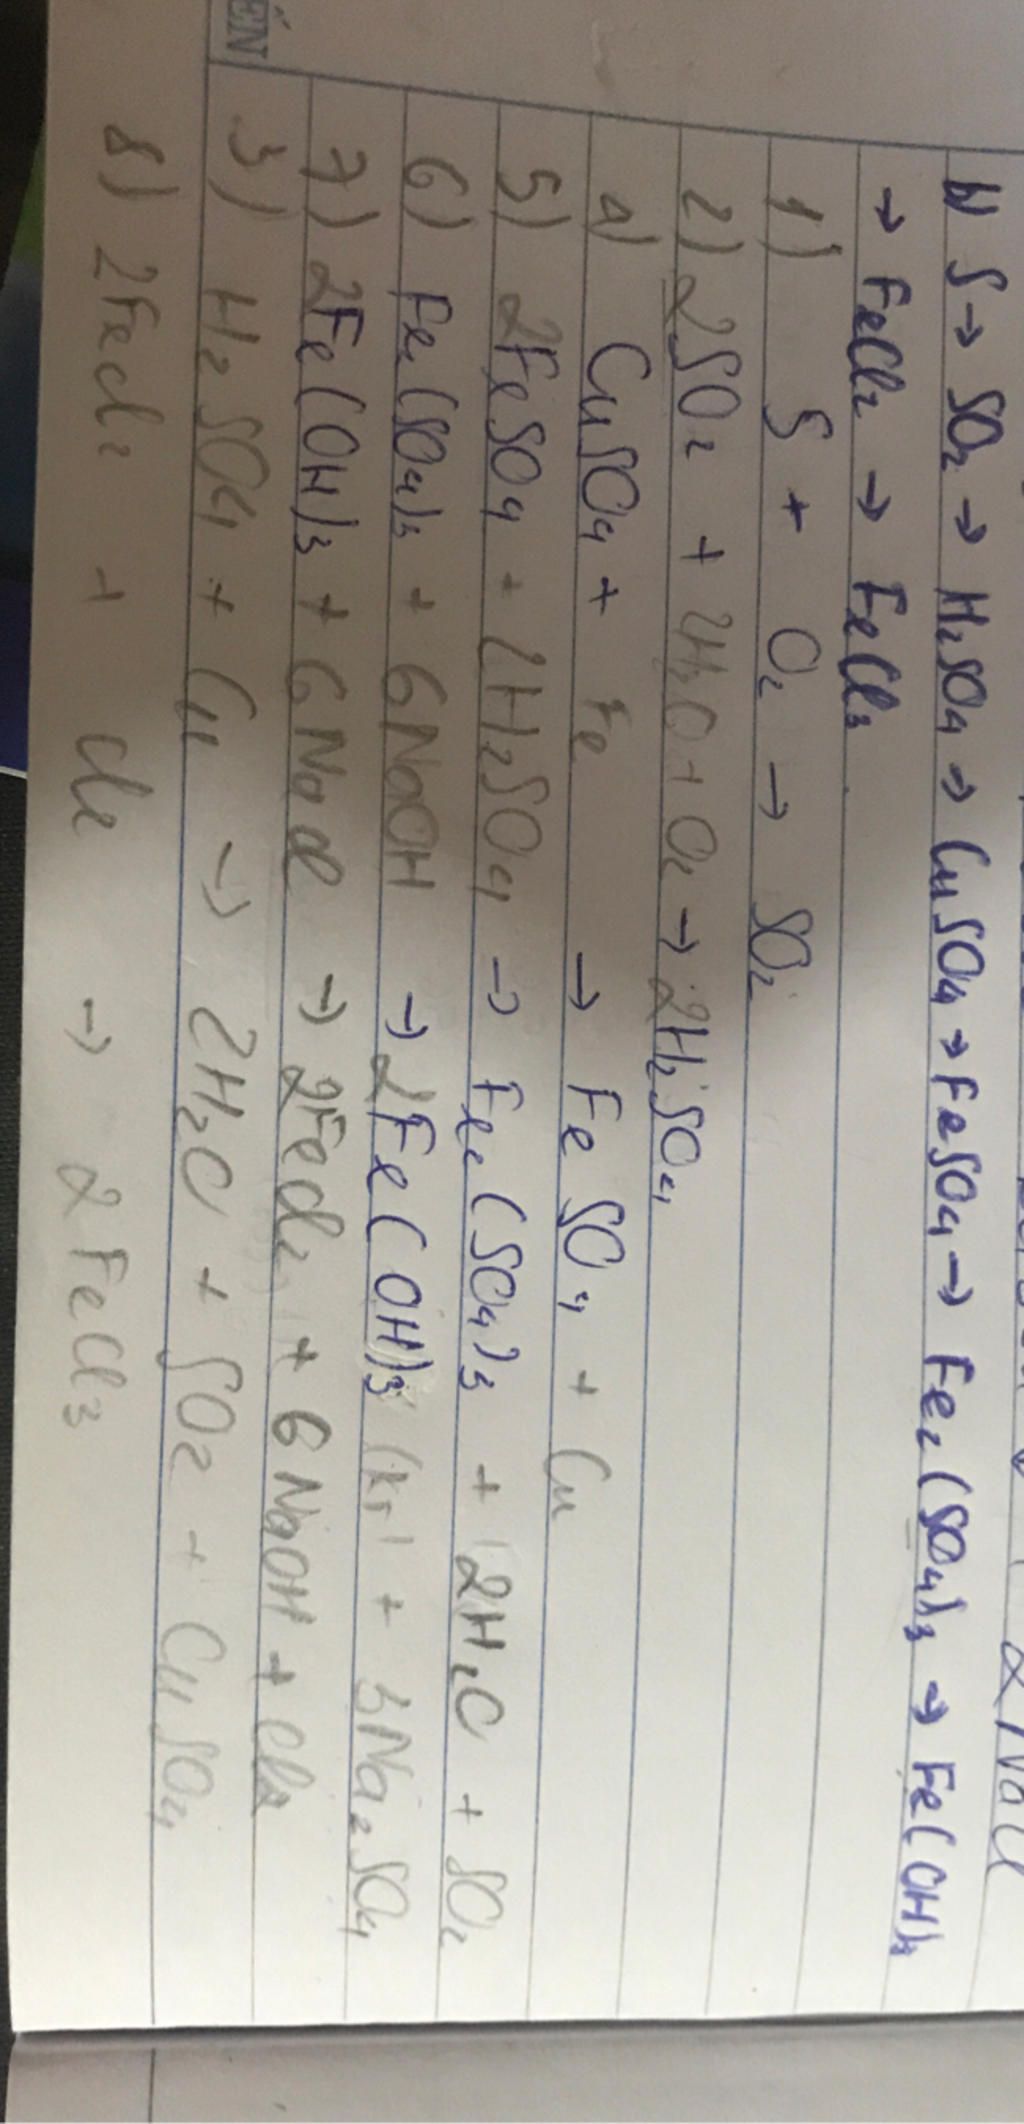 2 NaCl
b) S → SO₂ → H₂SO₄ → CuSO₄ → FeSO₄ → Fe₂(SO₄)₃ → Fe(OH)₃
→ FeCl₂ → FeCl₃
1) S + O₂ → SO₂
2) 2SO₂ + 2H₂O + O₂ → 2H₂SO₄
4) CuSO₄ + Fe → FeSO₄ + Cu
5) 2FeSO₄ + 2H₂SO₄ → Fe₂(SO₄)₃ + 2H₂O + SO₂
6) Fe₂(SO₄)₃ + 6NaOH → 2Fe(OH)₃ + 3Na₂SO₄
7) 2Fe(OH)₃ + 6NaCl → 2FeCl₂ + 6NaOH + Cl₂
3) H₂SO₄ + Cu → 2H₂O + SO₂ + CuSO₄
8) 2FeCl₂ + Cl₂ → 2FeCl₃